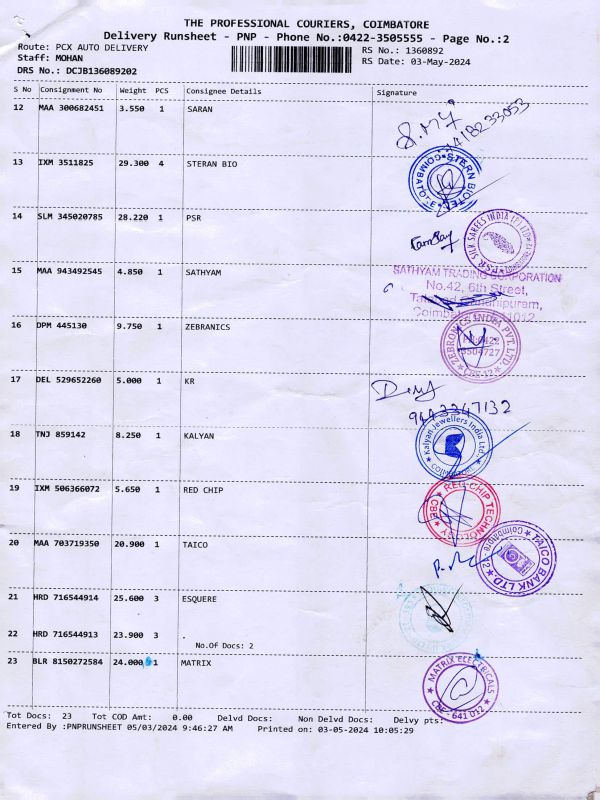 THE PROFESSIONAL COURIERS, COIMBATORE
Delivery Runsheet - PNP - Phone No.:0422-3505555 - Page No.:2
Route: PCX AUTO DELIVERY RS No.: 1360892
Staff: MOHAN RS Date: 03-May-2024
DRS No.: DCJB136089202
S No Consignment No Weight PCS Consignee Details Signature
12 MAA 300682451 3.550 1 SARAN
13 IXM 3511825 29.300 4 STERAN BIO
STERN BIOTEC COIMBATORE
14 SLM 345020785 28.220 1 PSR
PSR SILK SAREES INDIA (P) LTD
15 MAA 943492545 4.850 1 SATHYAM
SATHYAM TRADING CORPORATION
No.42, 6th Street,
16 DPM 445130 9.750 1 ZEBRANICS
PVT. LTD. CBE-12
17 DEL 529652260 5.000 1 KR
9443347132
18 TNJ 859142 8.250 1 KALYAN
Kalyan Jewellers India Ltd.,
19 IXM 506366072 5.650 1 RED CHIP
RED CHIP TECHNOLOGY CBE
20 MAA 703719350 20.900 1 TAICO
TAICO BANK LTD Coimbatore - 12
21 HRD 716544914 25.600 3 ESQUERE
22 HRD 716544913 23.900 3 .
No.Of Docs: 2
23 BLR 8150272584 24.000 1 MATRIX
MATRIX ELECTRICALS CBE - 641 012
Tot Docs: 23 Tot COD Amt: 0.00 Delvd Docs: Non Delvd Docs: Delvy pts:
Entered By :PNPRUNSHEET 05/03/2024 9:46:27 AM Printed on: 03-05-2024 10:05:29